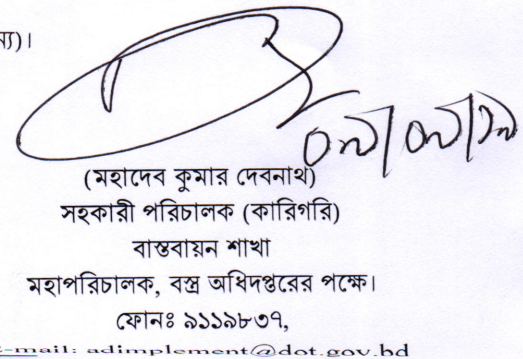 ন্য)।
(মহাদেব কুমার দেবনাথ)
সহকারী পরিচালক (কারিগরি)
বাস্তবায়ন শাখা
মহাপরিচালক, বস্ত্র অধিদপ্তরের পক্ষে।
ফোনঃ ৯১১৯৮৩৭,
E-mail: adimplement@dot.gov.bd